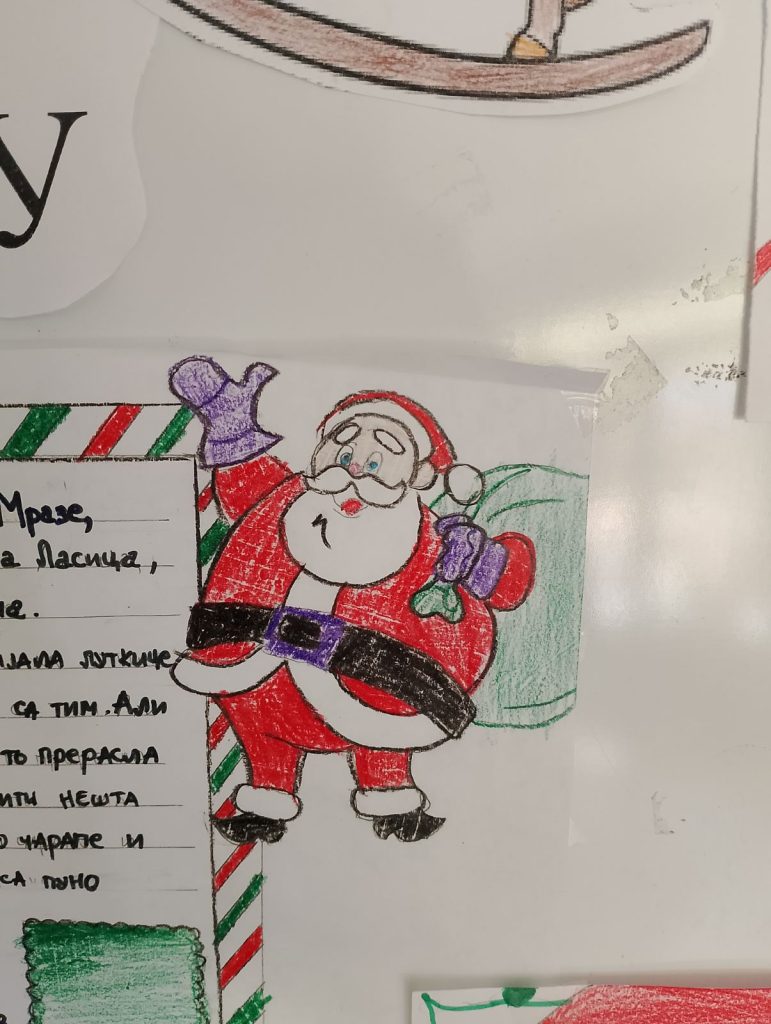 у
Мразе,
а Ласица,
ла.
јала луткице
са тим. Али
ть прерасла
ити нешта
о чарапе и
са пуно